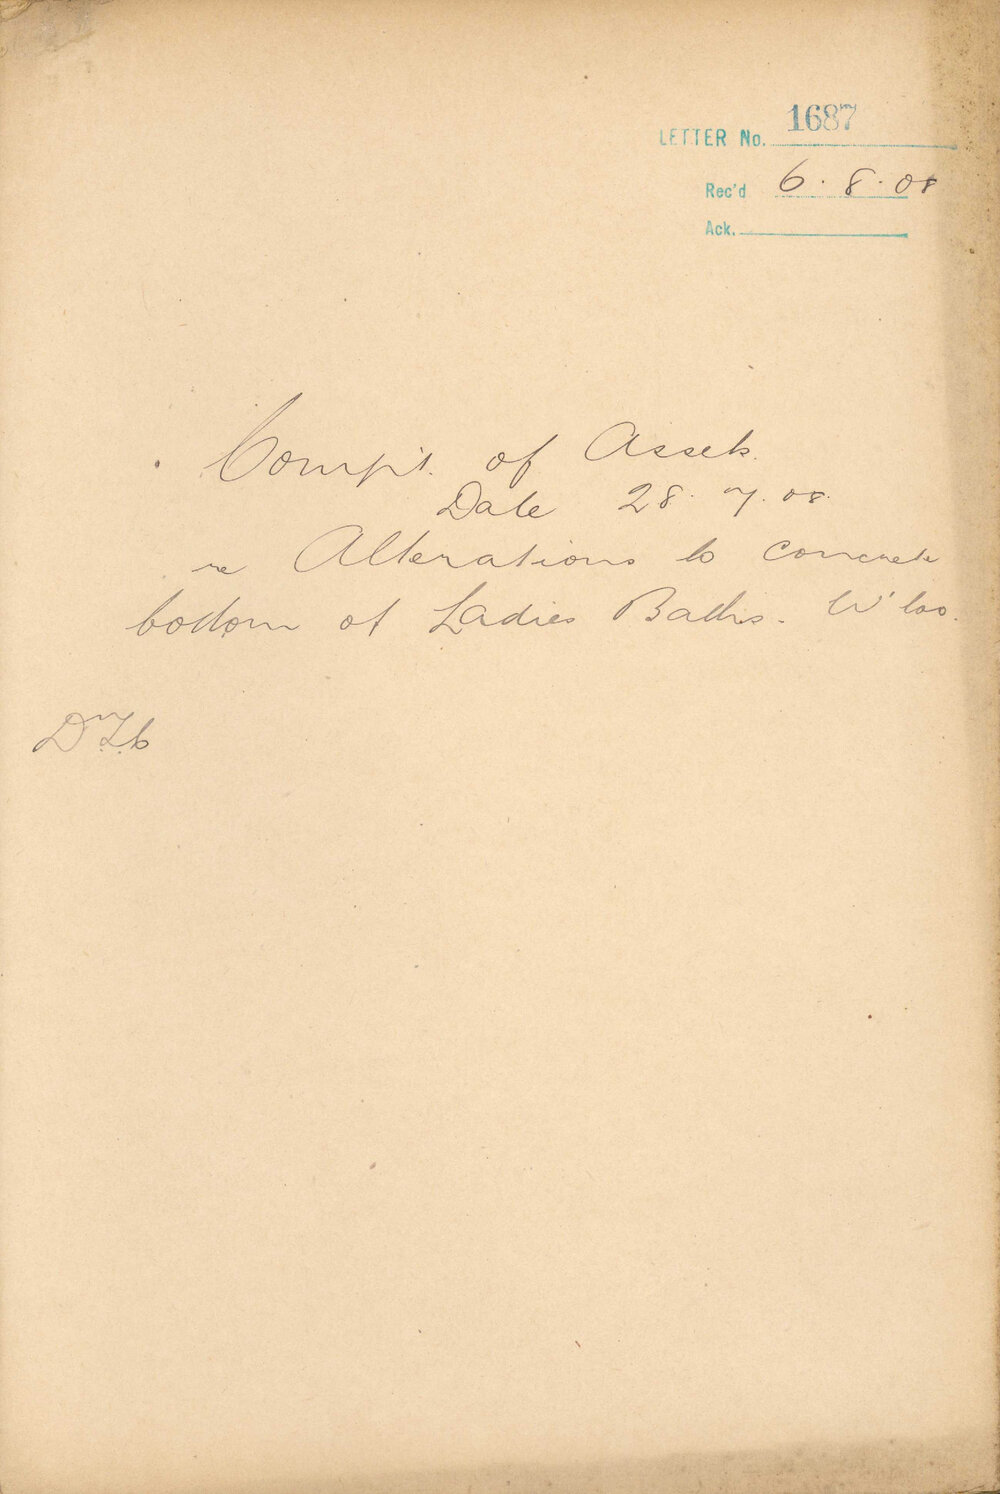 LETTER No. 1687
Rec'd 6.8.08
Ack.
Compt. of Assets.
Date 28.7.08.
re Alterations to concrete
bottom of Ladies Baths. W'loo.